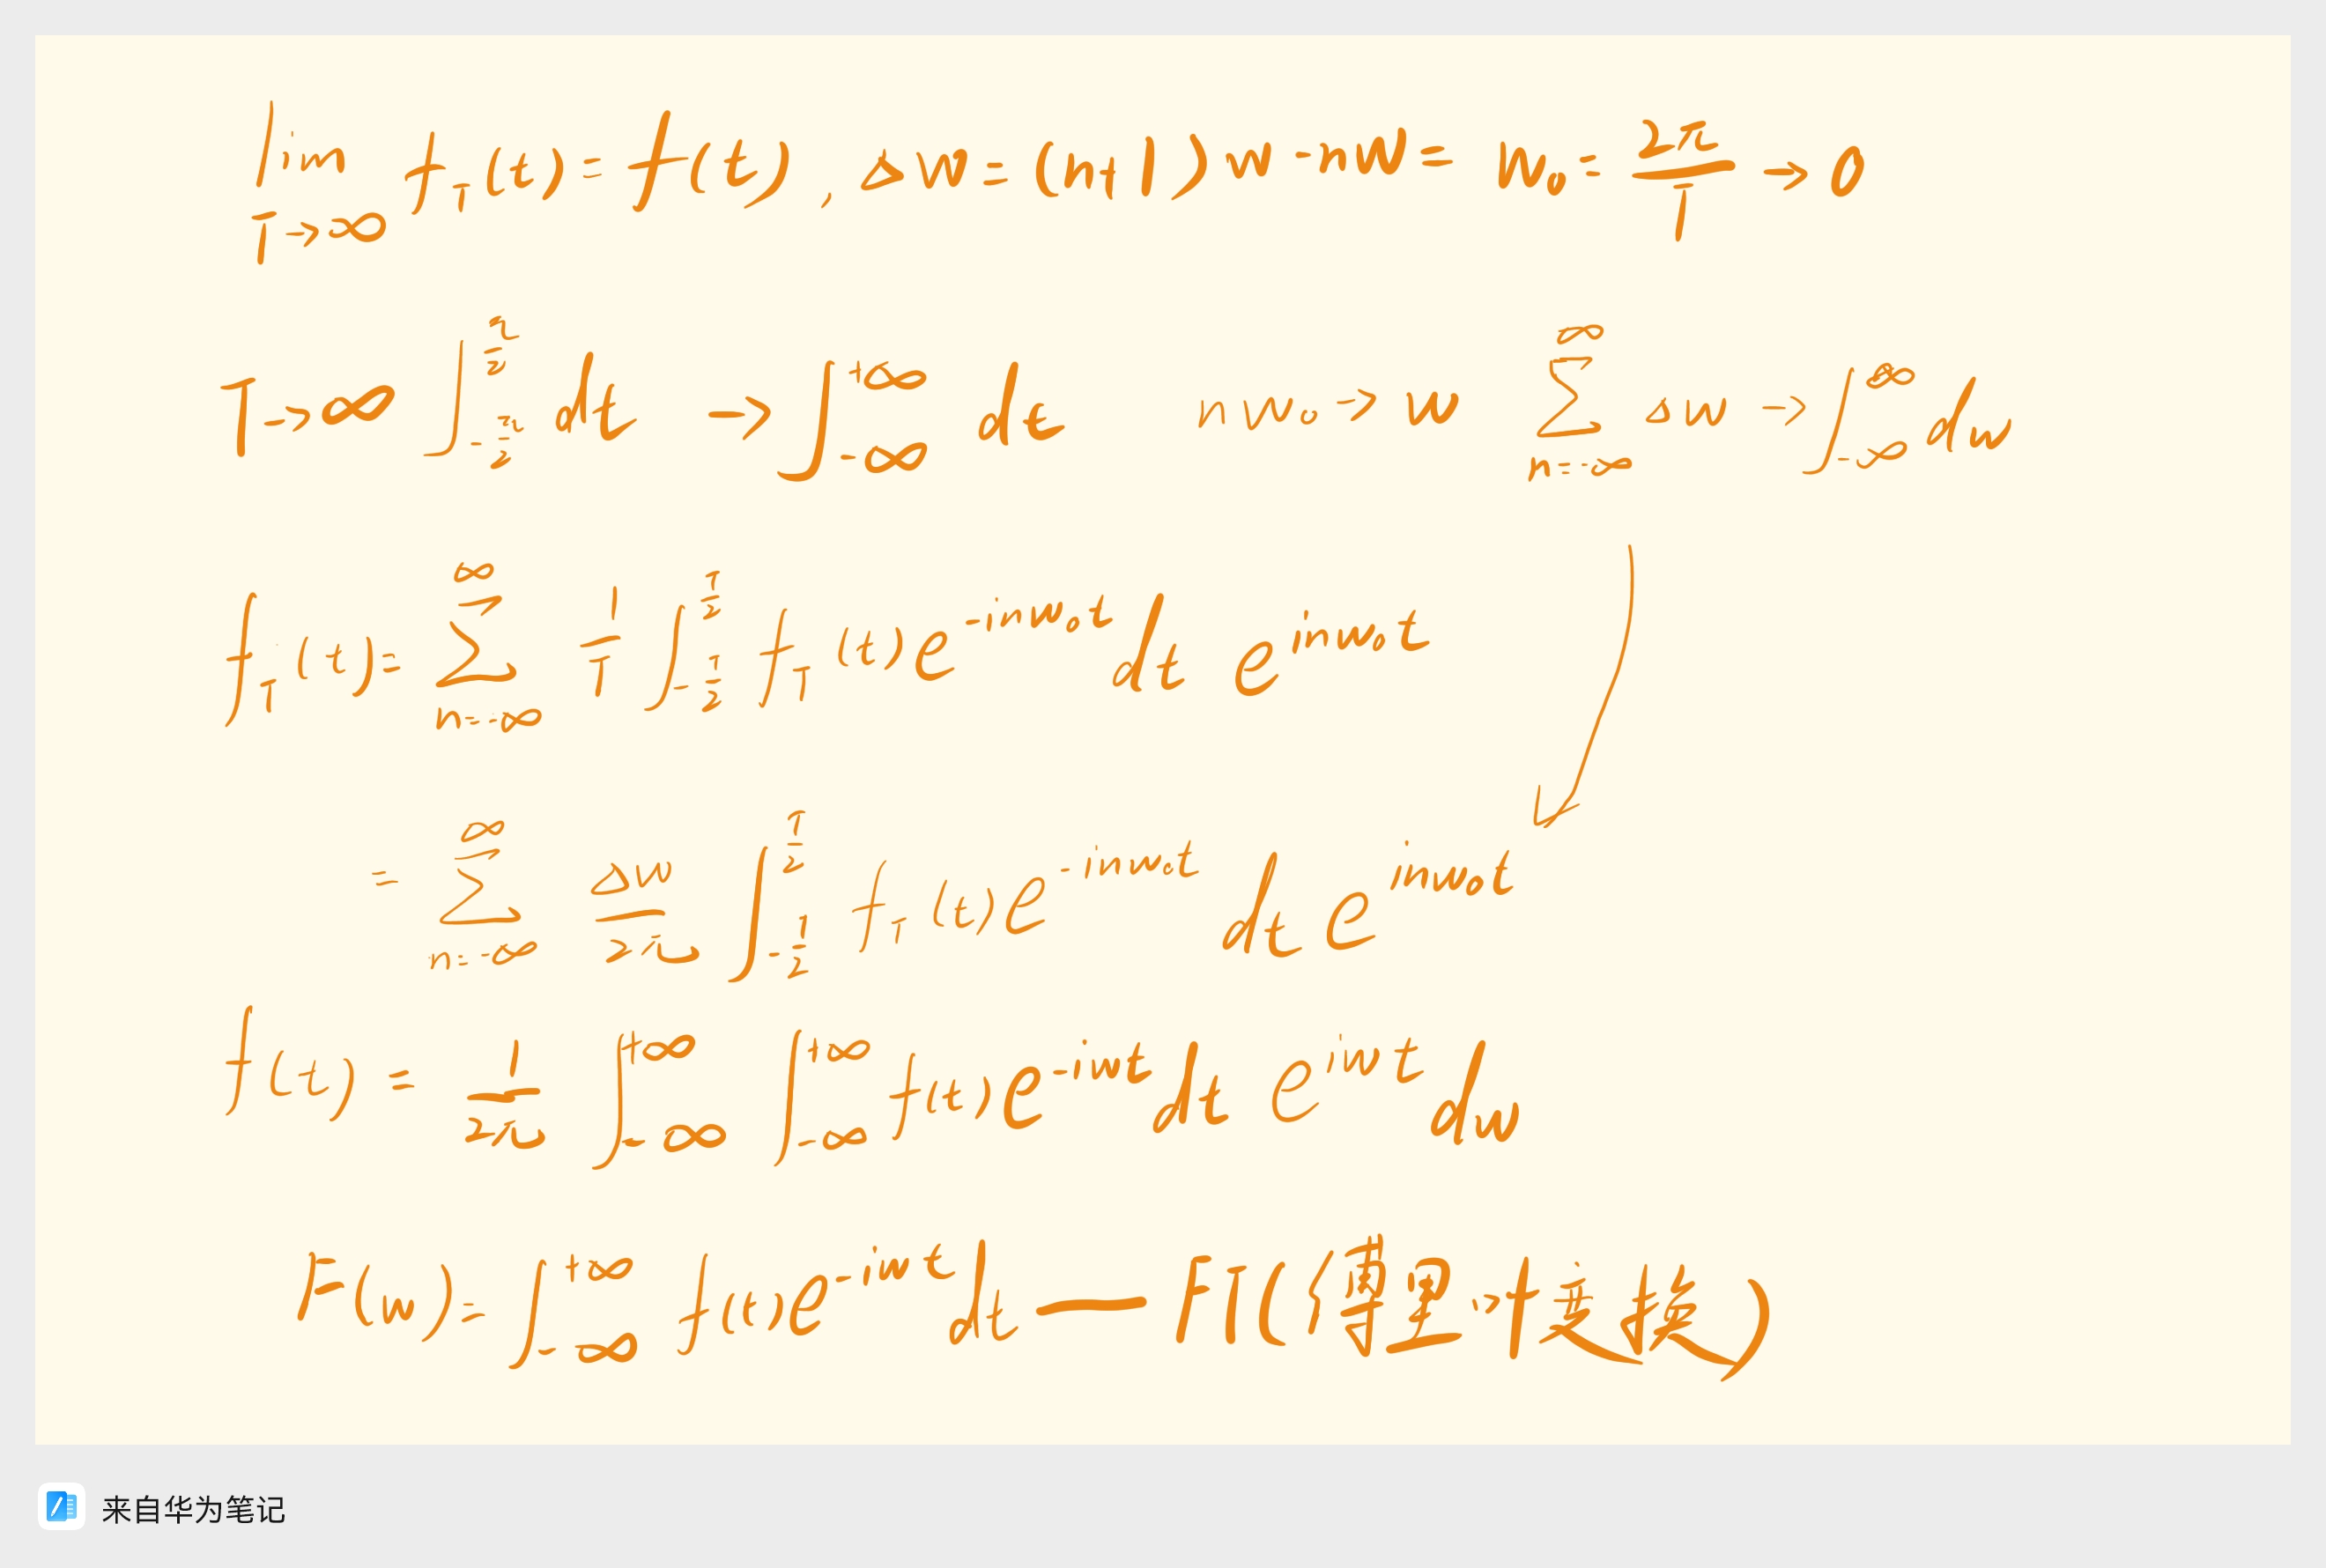 lim_{T→∞} f_T(t) = f(t), Δw = (n+1)w - nw = w₀ = 2π/T → 0
T→∞ ∫_{-π/2}^{π/2} dt → ∫_{-∞}^{+∞} dt nw₀ → w Σ_{n=-∞}^{∞} Δw → ∫_{-∞}^{∞} dw
f_T(t) = Σ_{n=-∞}^{∞} 1/T ∫_{-T/2}^{T/2} f_T(t) e^{-inw₀t} dt e^{inw₀t}
= Σ_{n=-∞}^{∞} Δw/2π ∫_{-T/2}^{T/2} f_T(t) e^{-inw₀t} dt e^{inw₀t}
f(t) = 1/2π ∫_{-∞}^{+∞} ∫_{-∞}^{+∞} f(t) e^{-iwt} dt e^{iwt} dw
F(w) = ∫_{-∞}^{+∞} f(t) e^{-iwt} dt — FT (傅里叶变换)
来自华为笔记